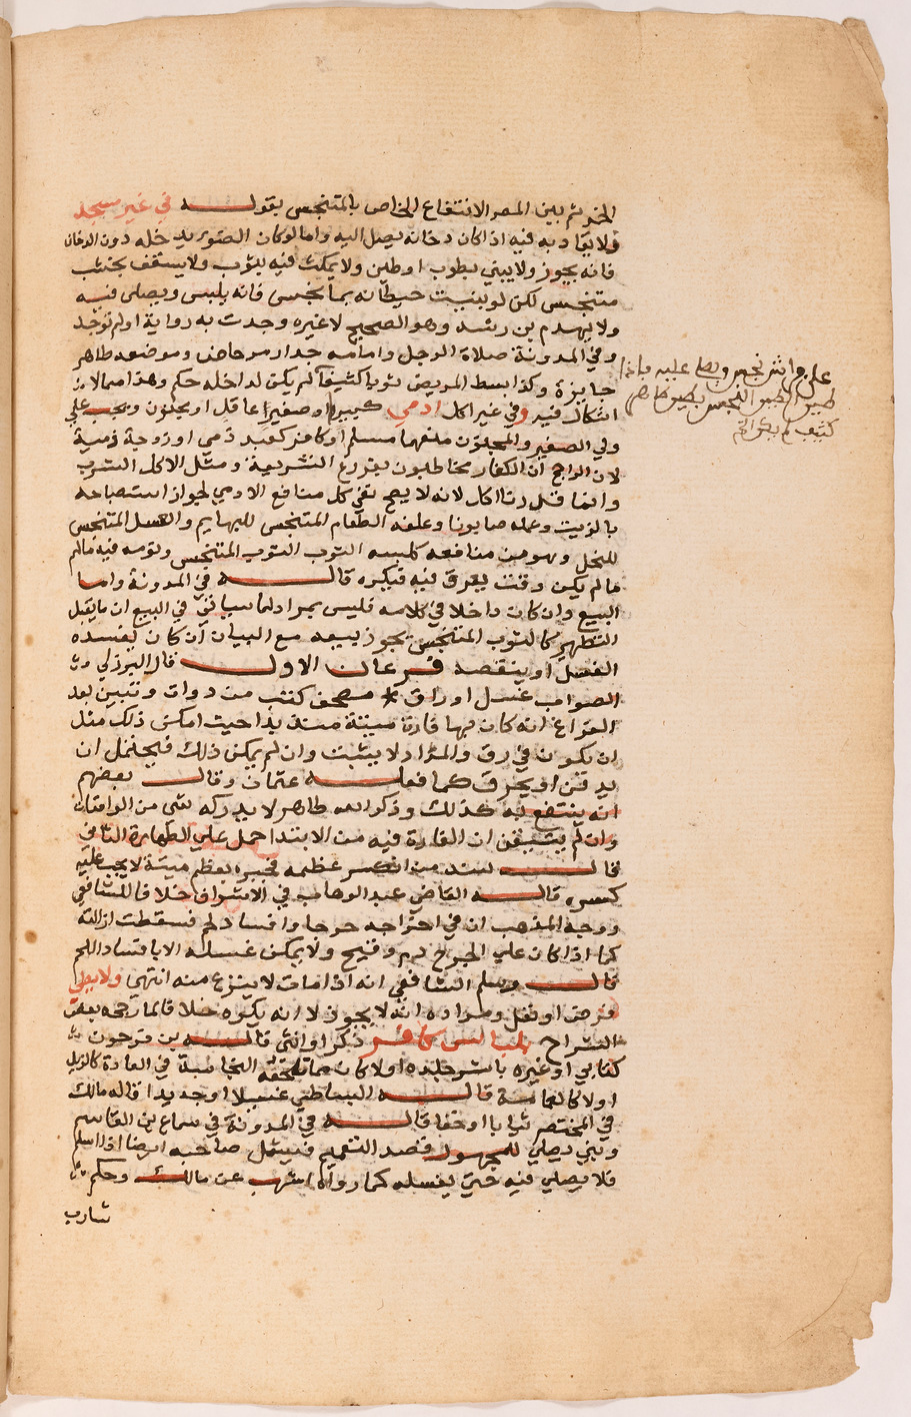 ثم بين المص الانتفاع الخاص بالمتنجس بقوله في غير مسجد
فلا يقاد به فيه اذا كان دخانه يصل اليه واما لو كان الضوء يدخله دون الدخان
فانه يجوز ولا يبني بطوب او طين ولا يمكث فيه بثوب ولا يسقف بخشب
متنجس لكن لو بنيت حيطانه بما نجس فانه يلبس ويصلى فيه
ولا يهدم بن رشد وهو الصحيح لا غيره وجدت به رواية او لم توجد
وفي المدونة صلاة الرجل وامامه جدار مرحاض وموضعه طاهر
جايزة وكذا بسط المريض ثوبا كثيفا لم يكن لداخله حكم وهذا مما لا
اشكال فيه وفي غير اكل ادمي كبيرا او صغيرا عاقل او مجنون ويجب علي
ولي الصغير والمجنون منعهما مسلم او كافر كعبد ذمي او زوجة ذمية
لان الراجح ان الكفار مخاطبون بفروع الشريعة ومثل الاكل الشرب
وانما قلنا اكل لانه لا يصح نفي كل منافع الادمي لجواز استصباحه
بالزيت وعمله صابونا وعلفه الطعام المتنجس للبهايم والعسل المتنجس
للنحل وهو من منافعه كلبسه الثوب المتنجس ونومه فيه مالم
مالم يكن وقت يعرق فيه فيكره قاله في المدونة واما
البيع وان كان داخلا في كلامه فليس بمراد لما سياتي في البيع ان ما يقبل
التطهير كالثوب المتنجس يجوز بيعه مع البيان ان كان يفسده
الغسل او ينقصه فرعان الاول قال البرزلي
الصواب غسل اوراق مصحف كتب من دوات وتبين بعد
الفراغ انه كان بها فارة ميتة حيث امكن ذلك مثل
ان يكون في رق والمداد لا يثبت وان لم يمكن ذلك فيحتمل ان
يدفن او يحرق كما فعله عثمان وقال بعضهم
انه ينتفع به كذلك وذكر الله طاهر لا يدركه شي من الواقعات
وان لم يتيقن ان الفارة فيه من الابتدا حمل علي الطهارة الثاني
قال سند من انكسر عظمه فجبره بعظم ميتة لا يجب عليه
كسره قاله القاضي عبد الوهاب في الاشراف خلافا للشافعي
ووجه المذهب ان في اخراجه حرجا وافساد لحم فسقطت ازالته
كما اذا كان علي الجرح دم وقيح ولا يمكن غسله الا بافساد اللحم
قال وسلم الشافعي انه اذا مات لا ينزع منه انتهي ولا يصلي
فرض او نفل ومراده انه لا يجوز لا انه يكره خلافا لما رجحه بعض
الشراح بلباس كافر ذكر او انثي قاله بن فرحون
كتابي او غيره باشر جلده او لا كان مما تلحقه النجاسة في العادة كالذيل
او لا كالعمامة قاله البساطي غسيلا او جديدا قاله مالك
في المختصر ثيابا او خفا قاله في المدونة في سماع بن القاسم
وبني يصلي للمجهول قصد التعميم فيشمل صاحبه ايضا اذا اسلم
فلا يصلي فيه حتي يغسله كما رواه اشهب عن مالك وحكم
شارب